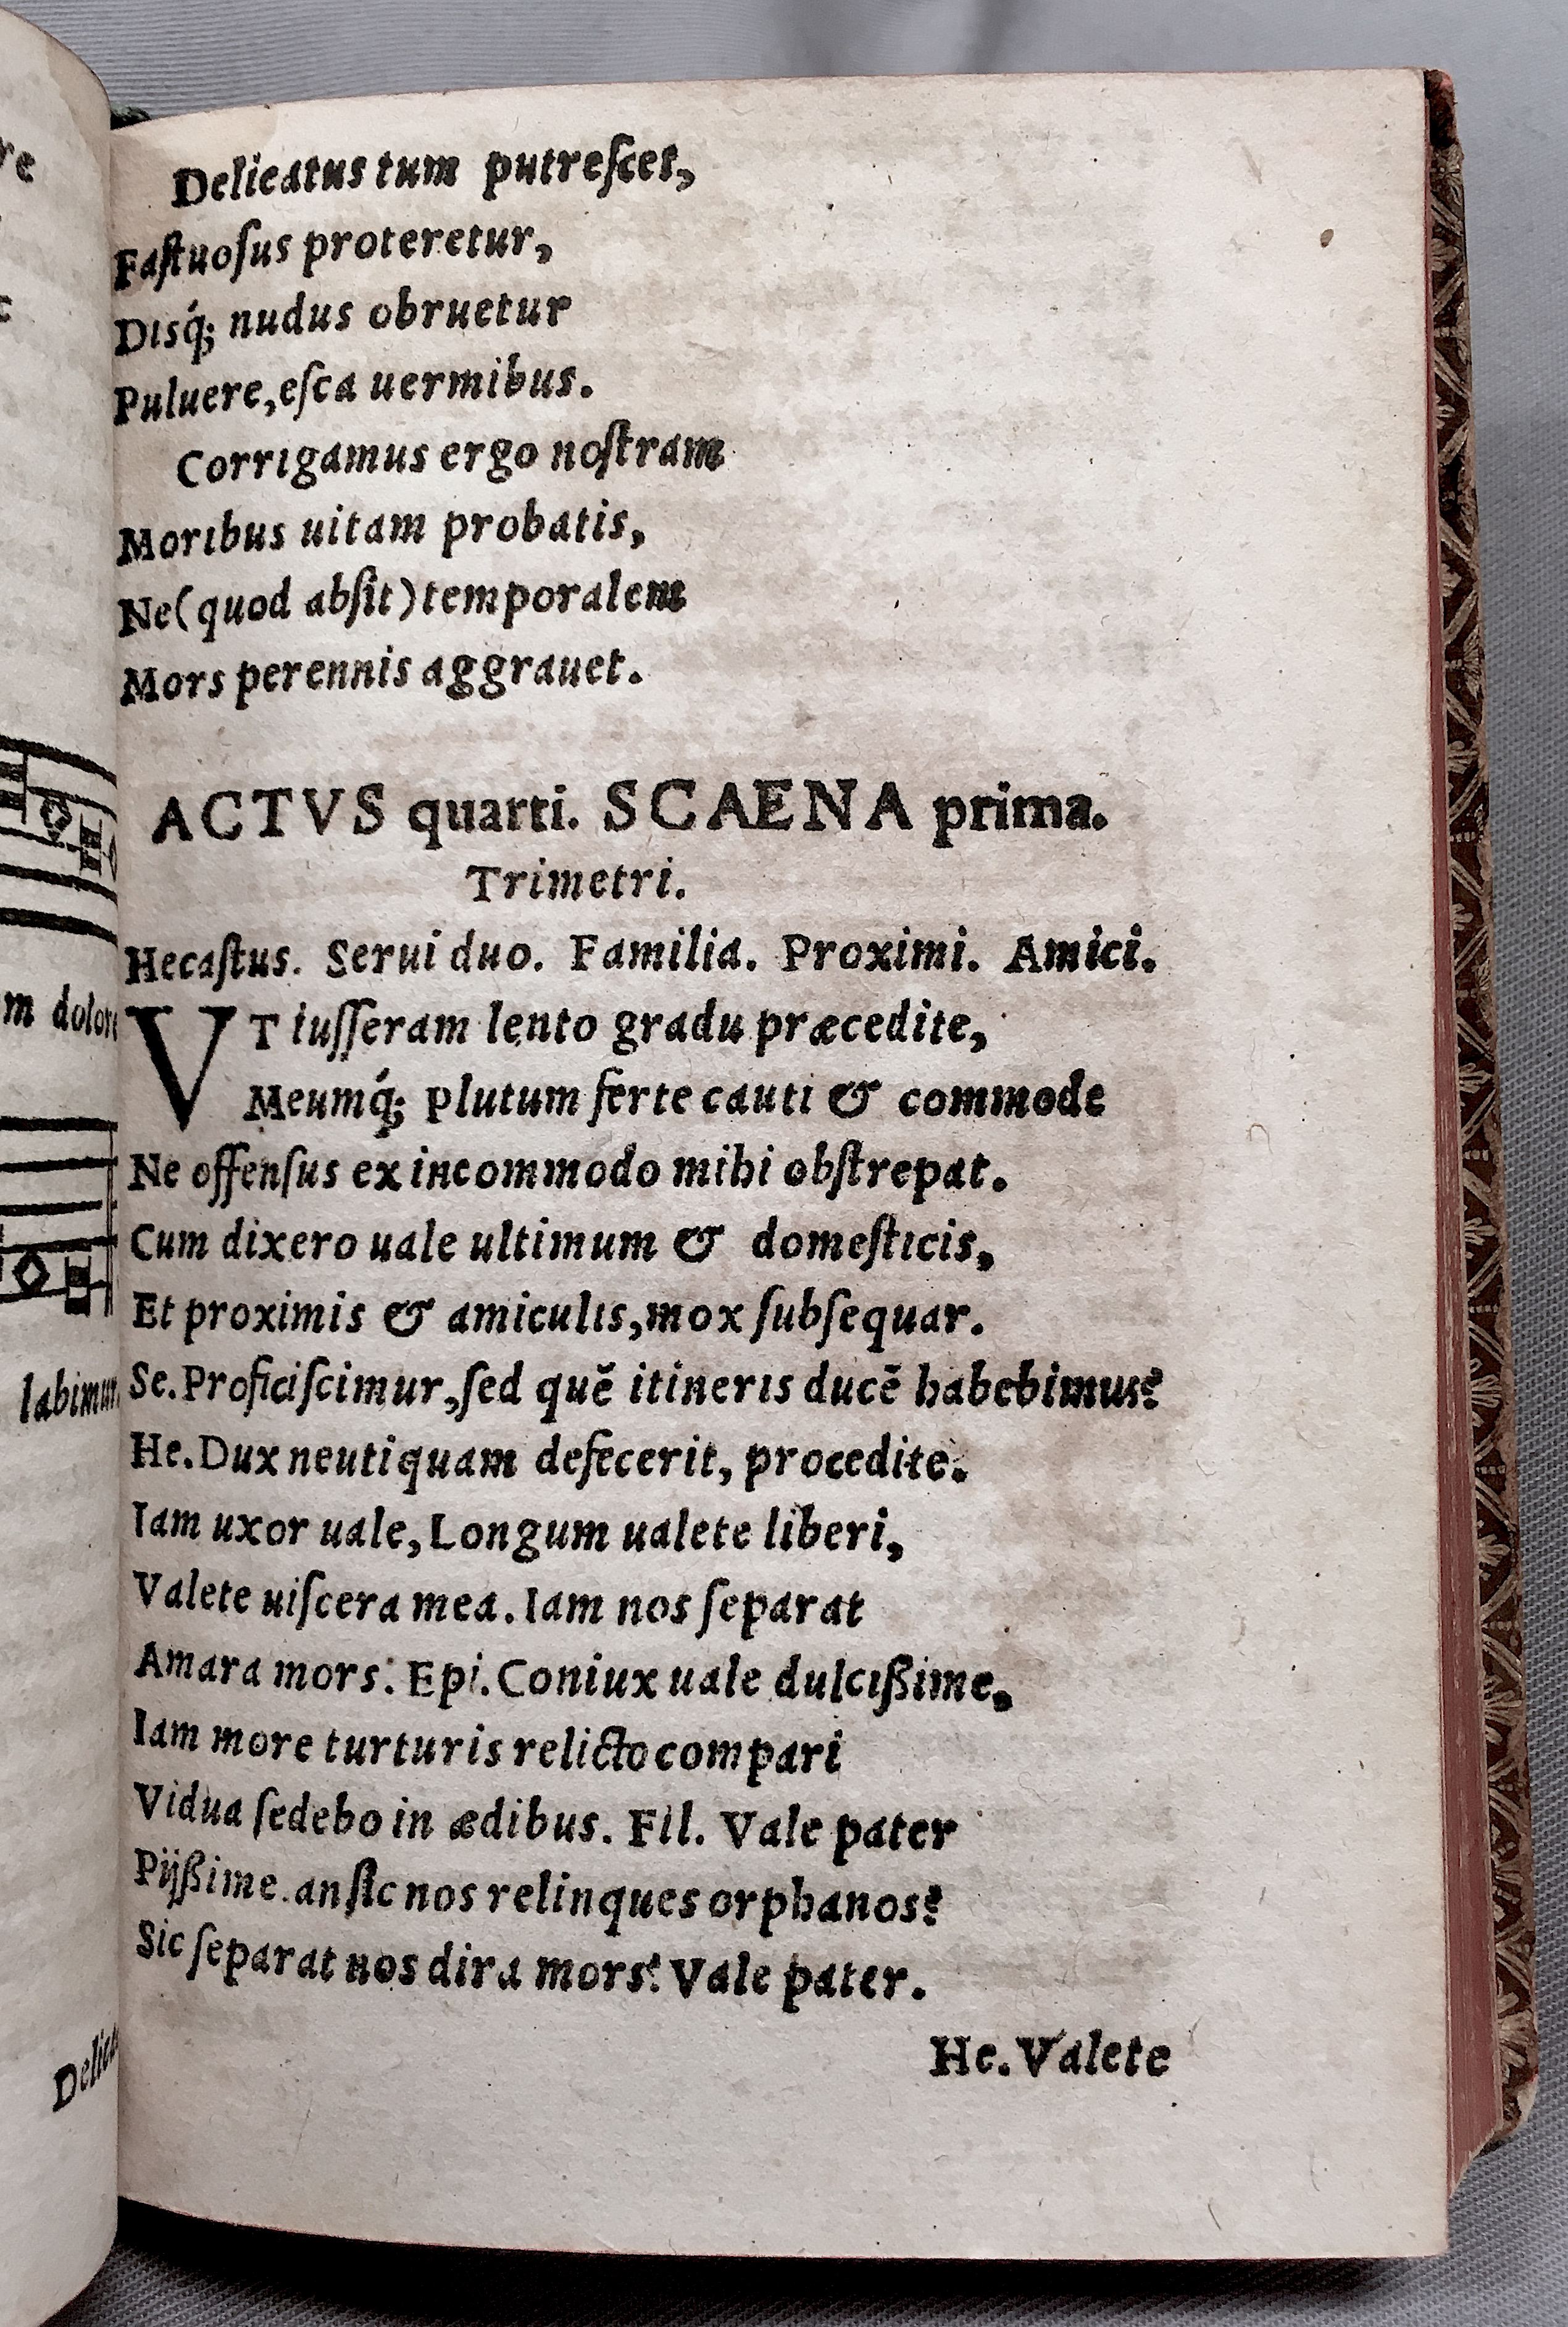 Delicatus tum putreſcet,
Faſtuoſus proteretur,
Disq́; nudus obruetur
Puluere, eſca uermibus.
Corrigamus ergo noſtram
Moribus uitam probatis,
Ne (quod abſit) temporalem
Mors perennis aggrauet.
ACTVS quarti. SCAENA prima.
Trimetri.
Hecaſtus. Serui duo. Familia. Proximi. Amici.
VT iuſſeram lento gradu præcedite,
Meumq́; Plutum ferte cauti & commode
Ne offenſus ex incommodo mihi obſtrepat.
Cum dixero uale ultimum & domeſticis,
Et proximis & amiculis, mox ſubſequar.
Se. Proficiſcimur, ſed quē itineris ducē habebimus?
He. Dux neutiquam defecerit, procedite.
Iam uxor uale, Longum ualete liberi,
Valete uiſcera mea. Iam nos ſeparat
Amara mors. Epi. Coniux uale dulcißime,
Iam more turturis relicto compari
Vidua ſedebo in ædibus. Fil. Vale pater
Pijßime. an ſic nos relinques orphanos?
Sic ſeparat nos dira mors? Vale pater.
He. Valete
re
m dolore
labimur
Delica